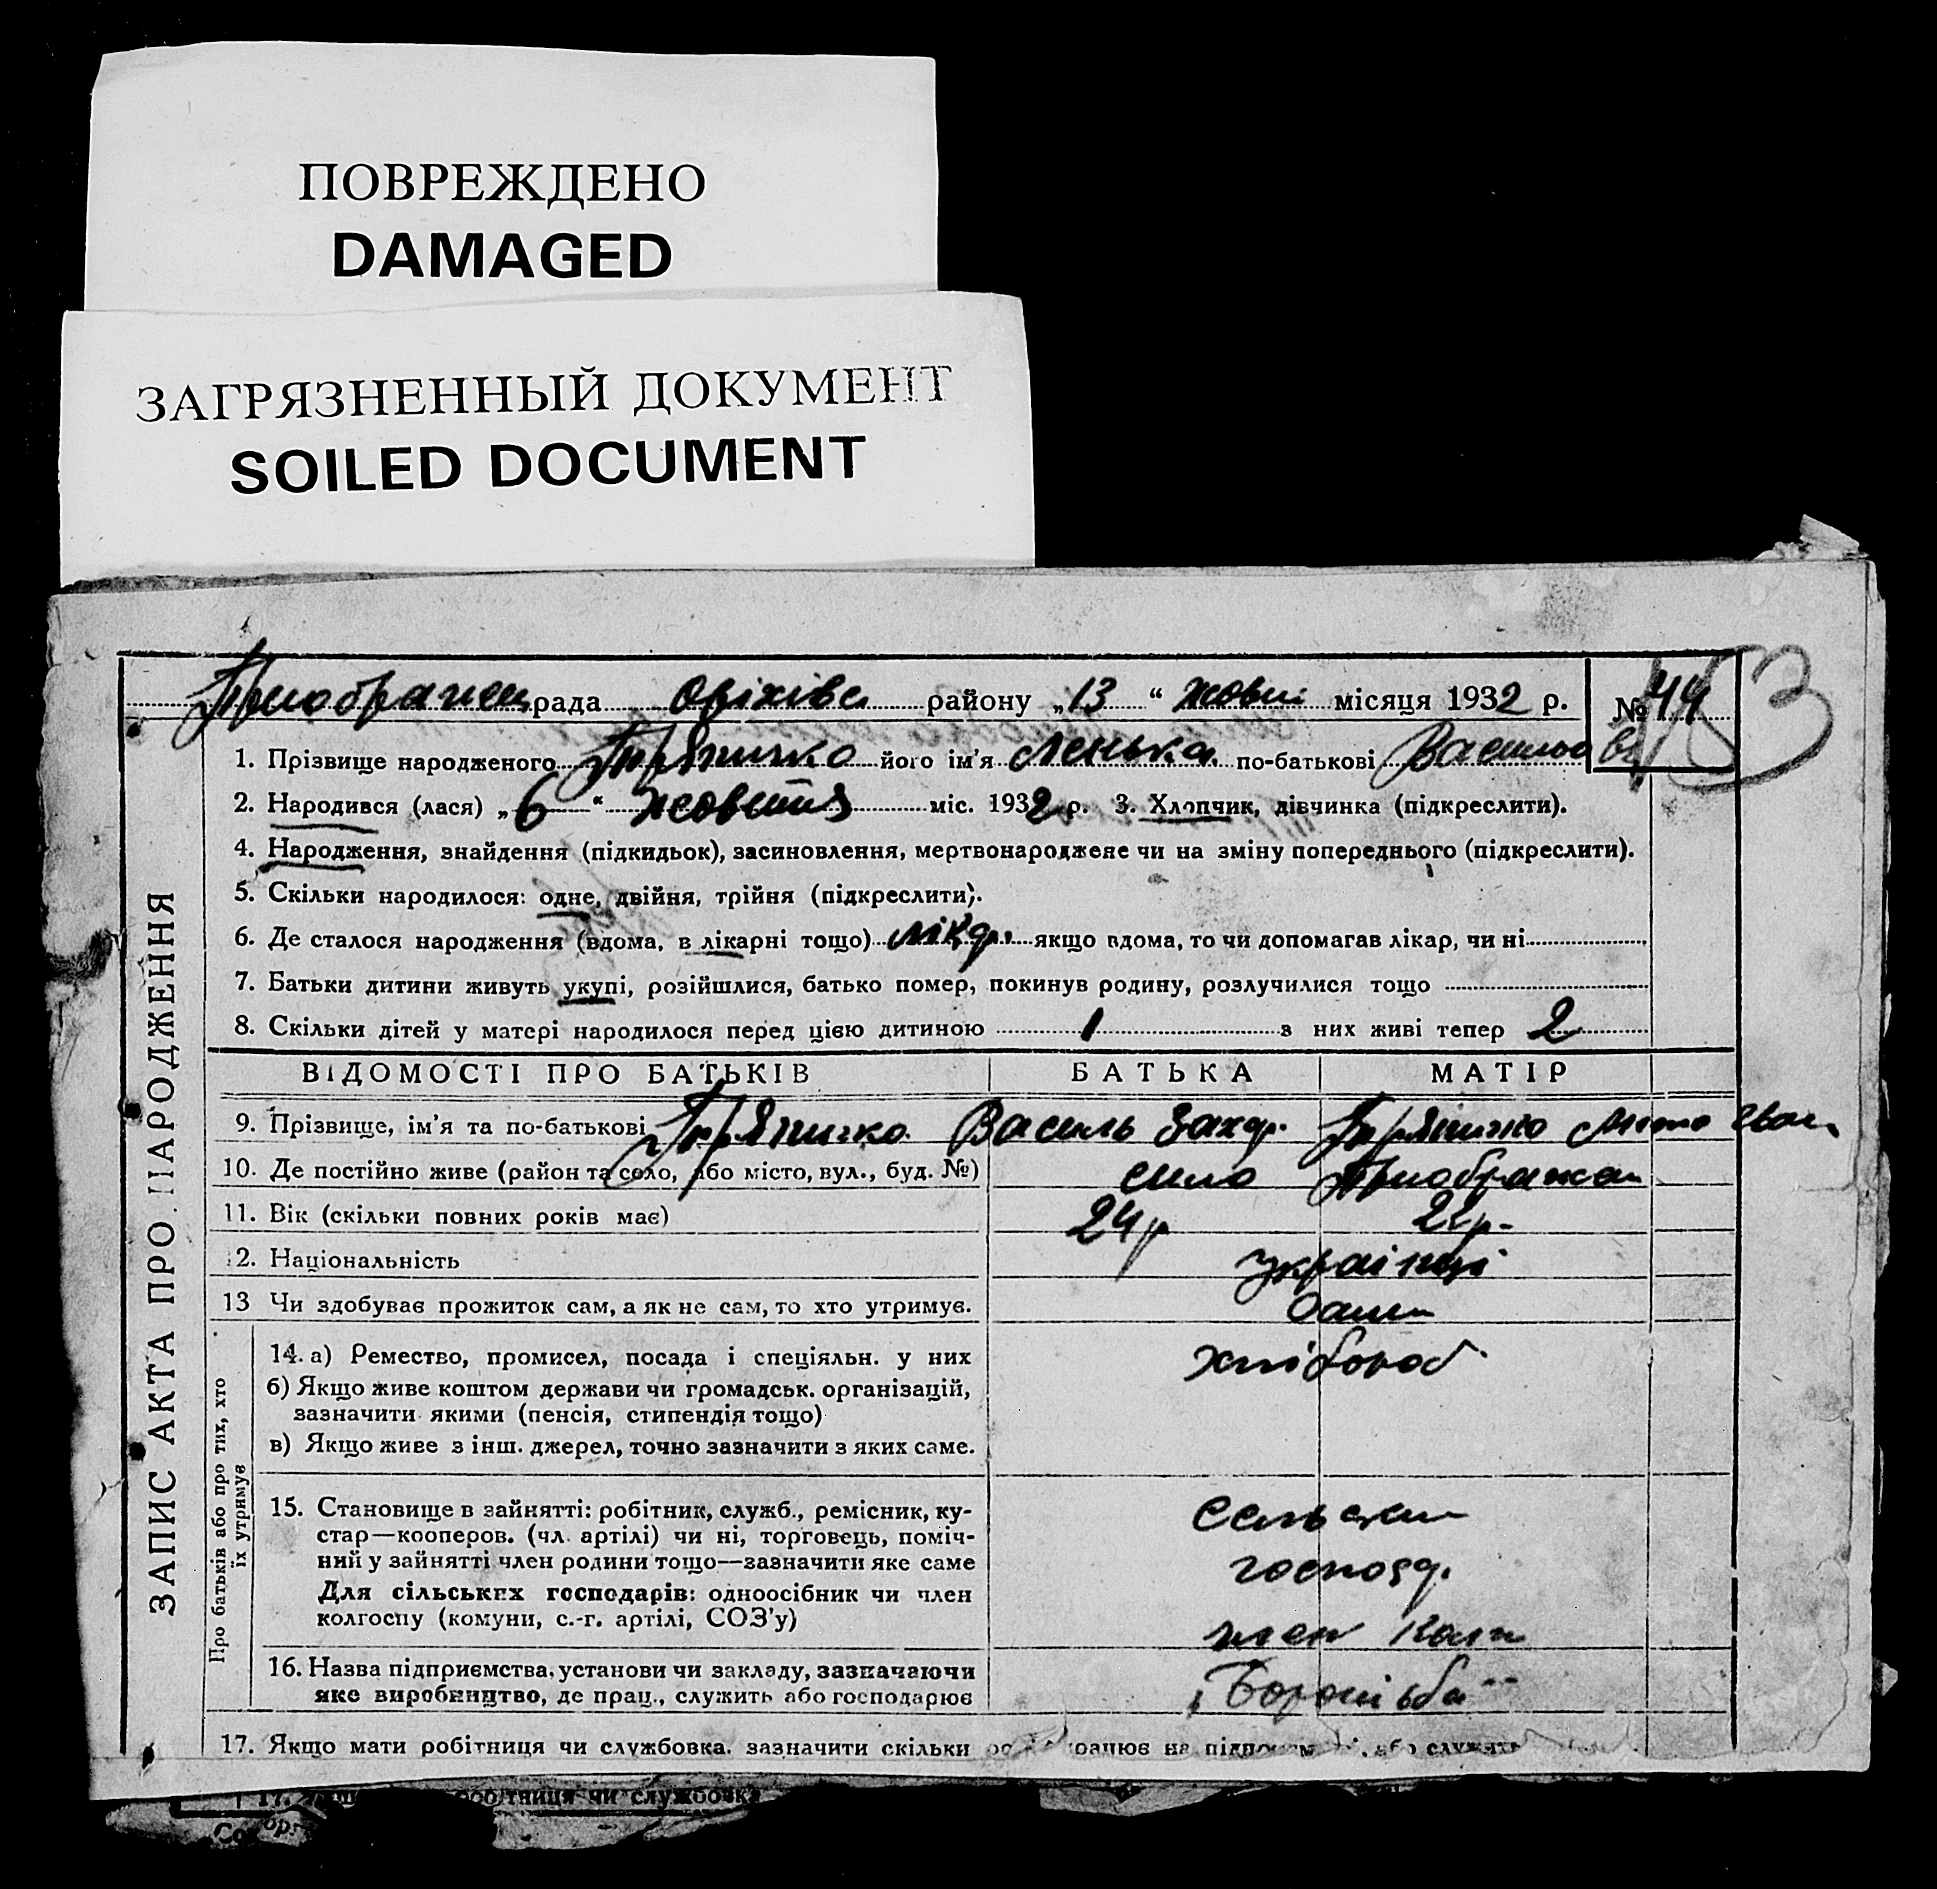 ПОВРЕЖДЕНО
DAMAGED
ЗАГРЯЗНЕННЫЙ ДОКУМЕНТ
SOILED DOCUMENT
рада Оріхівс району „13“ жовт місяця 1932 р. № 44
1. Прізвище народженого його ім'я Ленька по-батькові Васильов
2. Народився (лася) „6“ жовтня міс. 1932 р. 3. Хлопчик, дівчинка (підкреслити).
4. Народження, знайдення (підкидьок), засиновлення, мертвонароджене чи на зміну попереднього (підкреслити).
5. Скільки народилося: одне, двійня, трійня (підкреслити).
6. Де сталося народження (вдома, в лікарні тощо) лікар. якщо вдома, то чи допомагав лікар, чи ні
7. Батьки дитини живуть укупі, розійшлися, батько помер, покинув родину, розлучилися тощо
8. Скільки дітей у матері народилося перед цією дитиною 1 з них живі тепер 2
ВІДОМОСТІ ПРО БАТЬКІВ БАТЬКА МАТІР
9. Прізвище, ім'я та по-батькові Василь Захар. Іван
10. Де постійно живе (район та село, або місто, вул., буд. №) село
11. Вік (скільки повних років має) 24 р 22 р.
12. Національність українці
13 Чи здобуває прожиток сам, а як не сам, то хто утримує.
Про батьків або про тих, хто їх утримує
14. а) Ремество, промисел, посада і спеціяльн. у них хлібороб
б) Якщо живе коштом держави чи громадськ. організацій,
зазначити якими (пенсія, стипендія тощо)
в) Якщо живе з інш. джерел, точно зазначити з яких саме.
15. Становище в зайнятті: робітник, служб., ремісник, ку-
стар—кооперов. (чл. артілі) чи ні, торговець, поміч-
ний у зайнятті член родини тощо—зазначити яке саме господ.
Для сільських господарів: одноосібник чи член
колгоспу (комуни, с.-г. артілі, СОЗ'у) член колг
16. Назва підприємства, установи чи закладу, зазначаючи „Боротьба“
яке виробництво, де прац., служить або господарює
17. Якщо мати робітниця чи службовка, зазначити скільки
ЗАПИС АКТА ПРО НАРОДЖЕННЯ